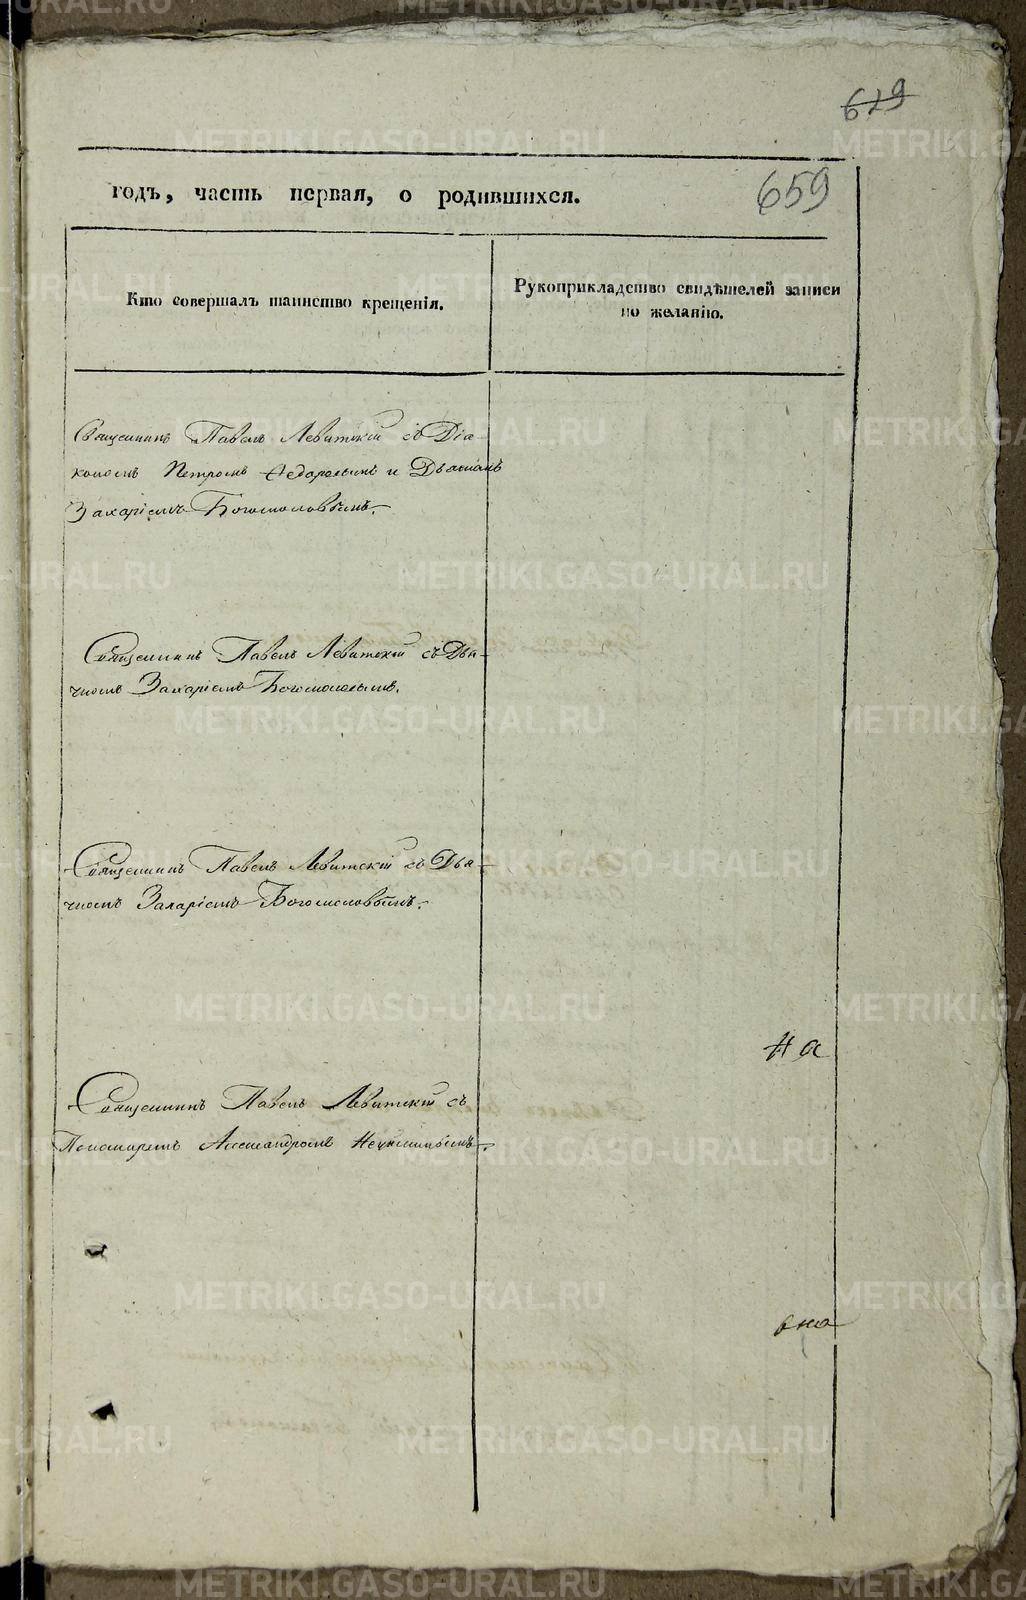 619
659
годъ, часть первая, о родившихся.
Кто совершалъ таинство крещенія.
Рукоприкладство свидѣтелей записи
по желанію.
Священникъ Павелъ Левитскій съ Діа-
кономъ Петромъ Федоровымъ и Дьячкомъ
Захаріемъ Богомоловымъ.
Священникъ Павелъ Левитскій съ Дья-
чкомъ Захаріемъ Богомоловымъ.
Священникъ Павелъ Левитскій съ Дья-
чкомъ Захаріемъ Богомоловымъ.
На
Священникъ Павелъ Левитскій съ
Пономаремъ Александромъ
METRIKI.GASO-URAL.RU